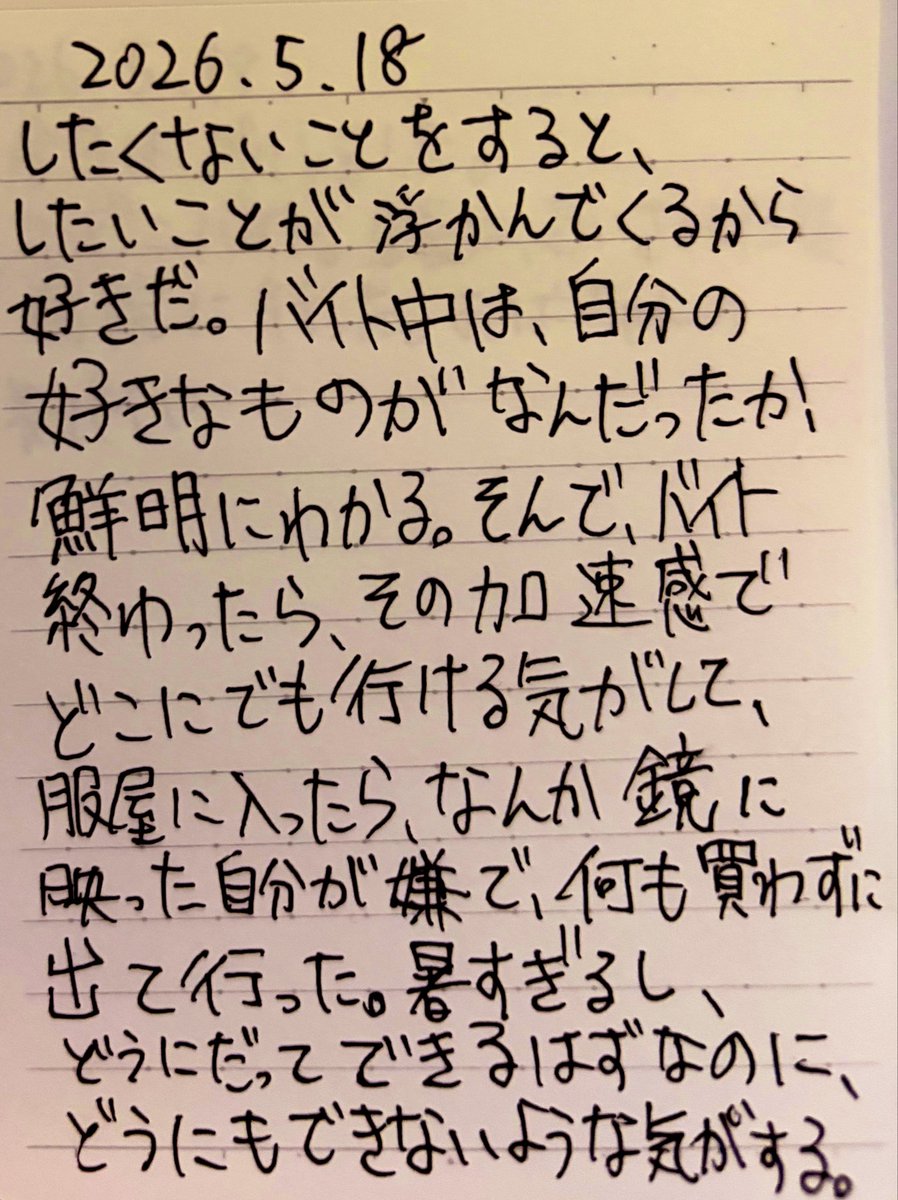 2026.5.18
したくないことをすると、
したいことが浮かんでくるから
好きだ。バイト中は、自分の
好きなものがなんだったか
鮮明にわかる。そんで、バイト
終わったら、その加速感で
どこにでも行ける気がして、
服屋に入ったら、なんか鏡に
映った自分が嫌で、何も買わずに
出て行った。暑すぎるし、
どうにだってできるはずなのに、
どうにもできないような気がする。